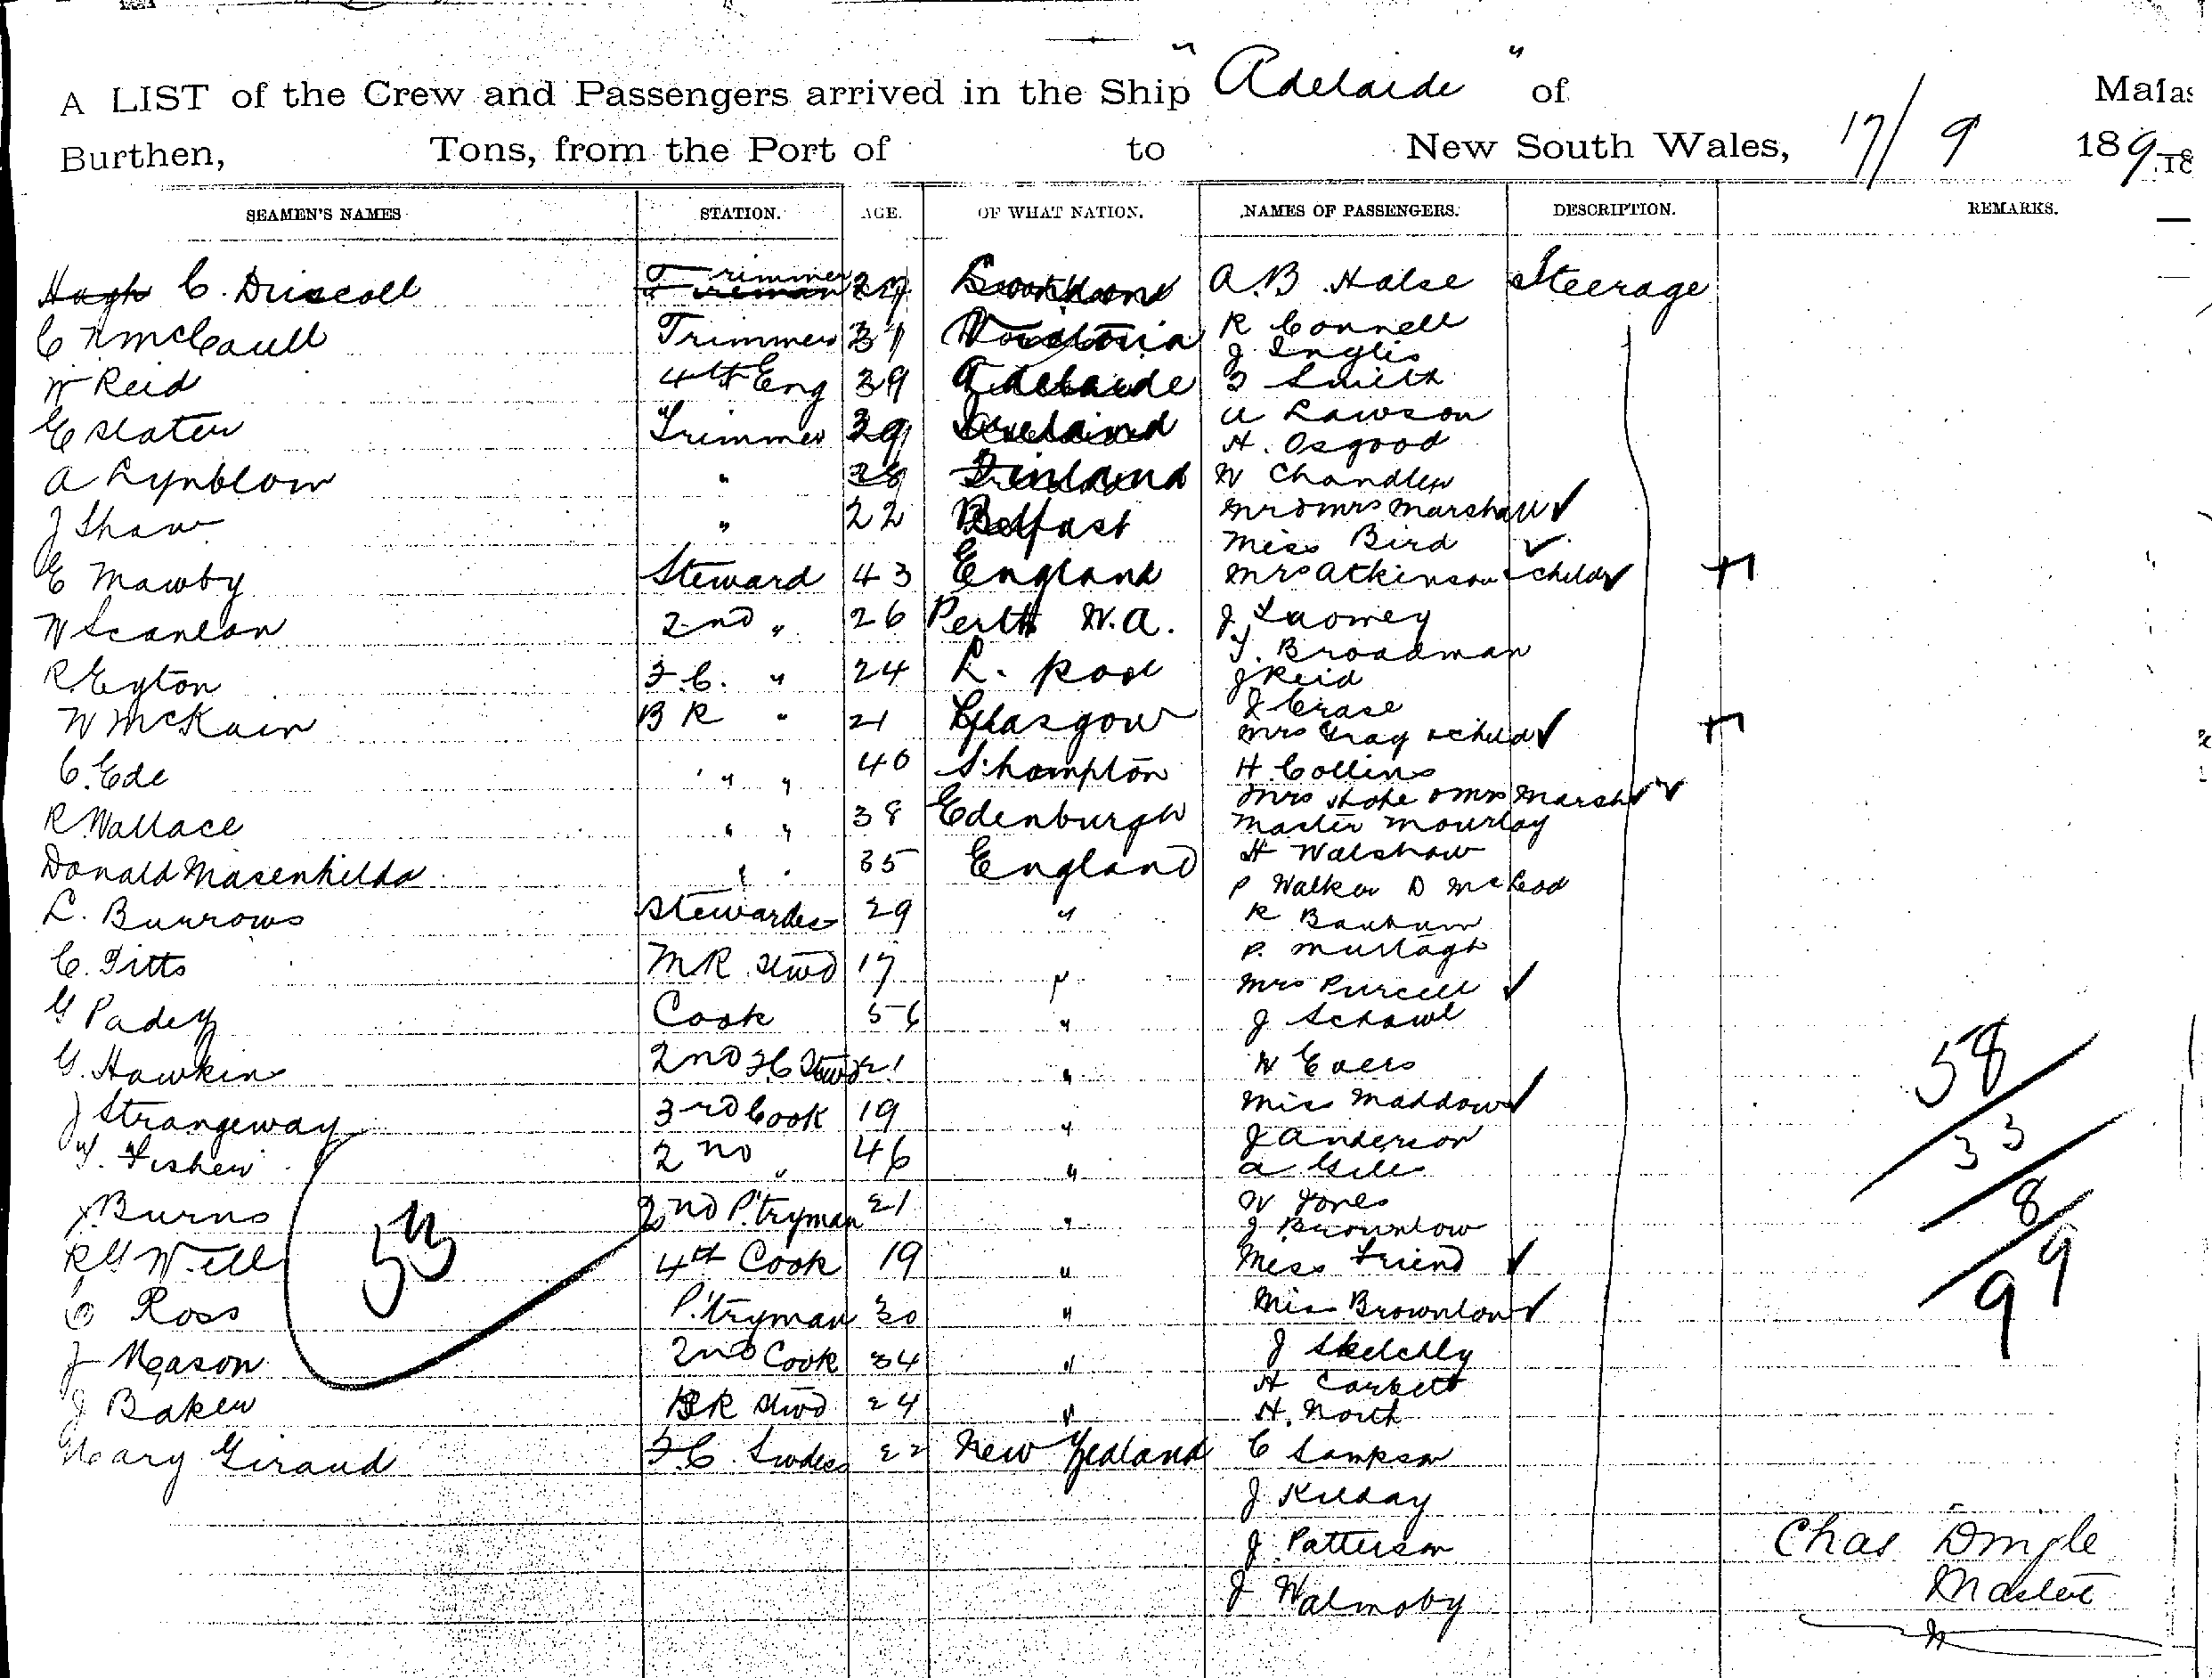 A LIST of the Crew and Passengers arrived in the Ship "Adelaide" of
Burthen, Tons, from the Port of to New South Wales, 17/9 189
SEAMEN'S NAMES STATION. AGE. OF WHAT NATION. NAMES OF PASSENGERS. DESCRIPTION. REMARKS.
Hugh C. Driscoll Trimmer Fireman A.B Halse Steerage
Trimmer R Connell
J Inglis
W Reid 4th Eng 39 Adelaide Smith
E Slater Trimmer 39 Ireland A Lawson
H. Osgood
A Lynblow " 28 Finland W Chandler
J Shaw " 22 Belfast Mr & Mrs Marshall
Miss Bird
E Mawby Steward 43 England Mrs Atkinson & child
W Scanlon 2nd " 26 Perth W.A. J Twomey
T. Broadman
R. Eyton F.C. " 24 L. pool J Reid
J Crase
W McKain BR " 21 Glasgow Mrs Gray & child
C. Ede " " 40 S.hampton H. Collins
Mrs & Mrs Marsh
R Wallace " " 38 Edenburgh Master Mourlay
H Walshaw
Donald " " 35 England P Walker D McLeod
L. Burrows Stewardess 29 " R Banham
P. Murtagh
C. Pitts MR Stwd 17 " Mrs Purcell
G Padey Cook 56 " J Schawl
G. Hawkin 2nd F.C Stwd 21 " W Evers
J Strangeway 3rd Cook 19 " Miss Maddows
J Anderson
T. Fisher 2nd " 46 " A Gill
J. Burns 2nd P.tryman 21 " W Jones
J Brownlow
R G Will 4th Cook 19 " Miss Friend
C Ross P.tryman 30 " Miss Brownlow
J Mason 2nd Cook 34 " J Sketchly
H Corbett
J Baker BR Stwd 24 " H. North
Mary Giraud F.C. Swdess 22 New Zealand C Sampson
J Kilday
J Patterson
J Walmsby
53
58
33
8
99
Chas Dingle
Master